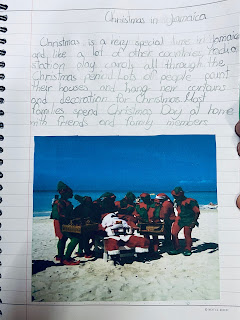 Christmas in Jamaica
Christmas is a very special time in Jamaica
and like a lot of other countries, radio
station play carols all through the
Christmas period. Lots of people paint
their houses and hang new curtains
and decoration for Christmas. Most
families spend Christmas Day at home
with friends and family members.